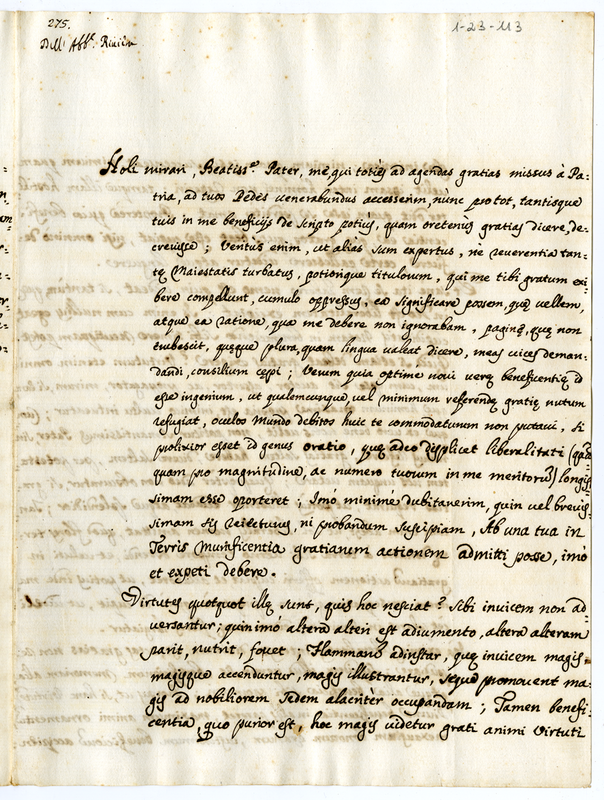 275.
Dell' Abb.e Riviera
1-23-113
Noli mirari, Beatiss.e Pater, me qui toties ad agendas gratias missus à Pa-
tria, ad tuos Pedes venerabundus accesserim, nunc pro tot, tantisque
tuis in me beneficijs de scripto potiùs, quam oretenùs gratias dicere, de-
crevisse; Veritus enim, ut alias sum expertus, ne reverentia tan-
tę Maiestatis turbatus, potiorique titulorum, qui me tibi gratum exi-
bere compellunt, cumulo oppressus, ea significare possem, quę vellem,
atque ea ratione, qua me debere non ignorabam, paginę, quę non
erubescit, quęque plura, quam lingua valeat dicere, meas vices deman-
dandi, consilium cępi; Verum quia optimè novi verę beneficentię id
esse ingenium, ut qualemcunque, vel minimum referendę gratię nutum
refugiat, oculos mundo debitos huic te commodaturum non putavi, si
prolixior esset id genus oratio, quę adeo displicet liberalitati (quã-
quam pro magnitudine, ac numero tuorum in me meritorũ) longis-
simam esse oporteret; Imò minime dubitaverim, quin vel brevis-
simam sis reiecturus, ni probandum suscipiam, Ab una tua in
Terris Munificentia gratiarum actionem admitti posse, imò
et expeti debere.
Virtutes quotquot illę sunt, quis hoc nesciat? Sibi invicem non ad-
versantur; quin imò altera alteri est adiumento, altera alteram
parit, nutrit, fovet; Flammarũ adinstar, quę invicem magis-
magisque accenduntur, magis illustrantur, seque promovent ma-
gis ad nobiliorem Sedem alacritèr occupandam; Tamen benefi-
centia, quo purior est, hoc magis videtur grati animi virtuti